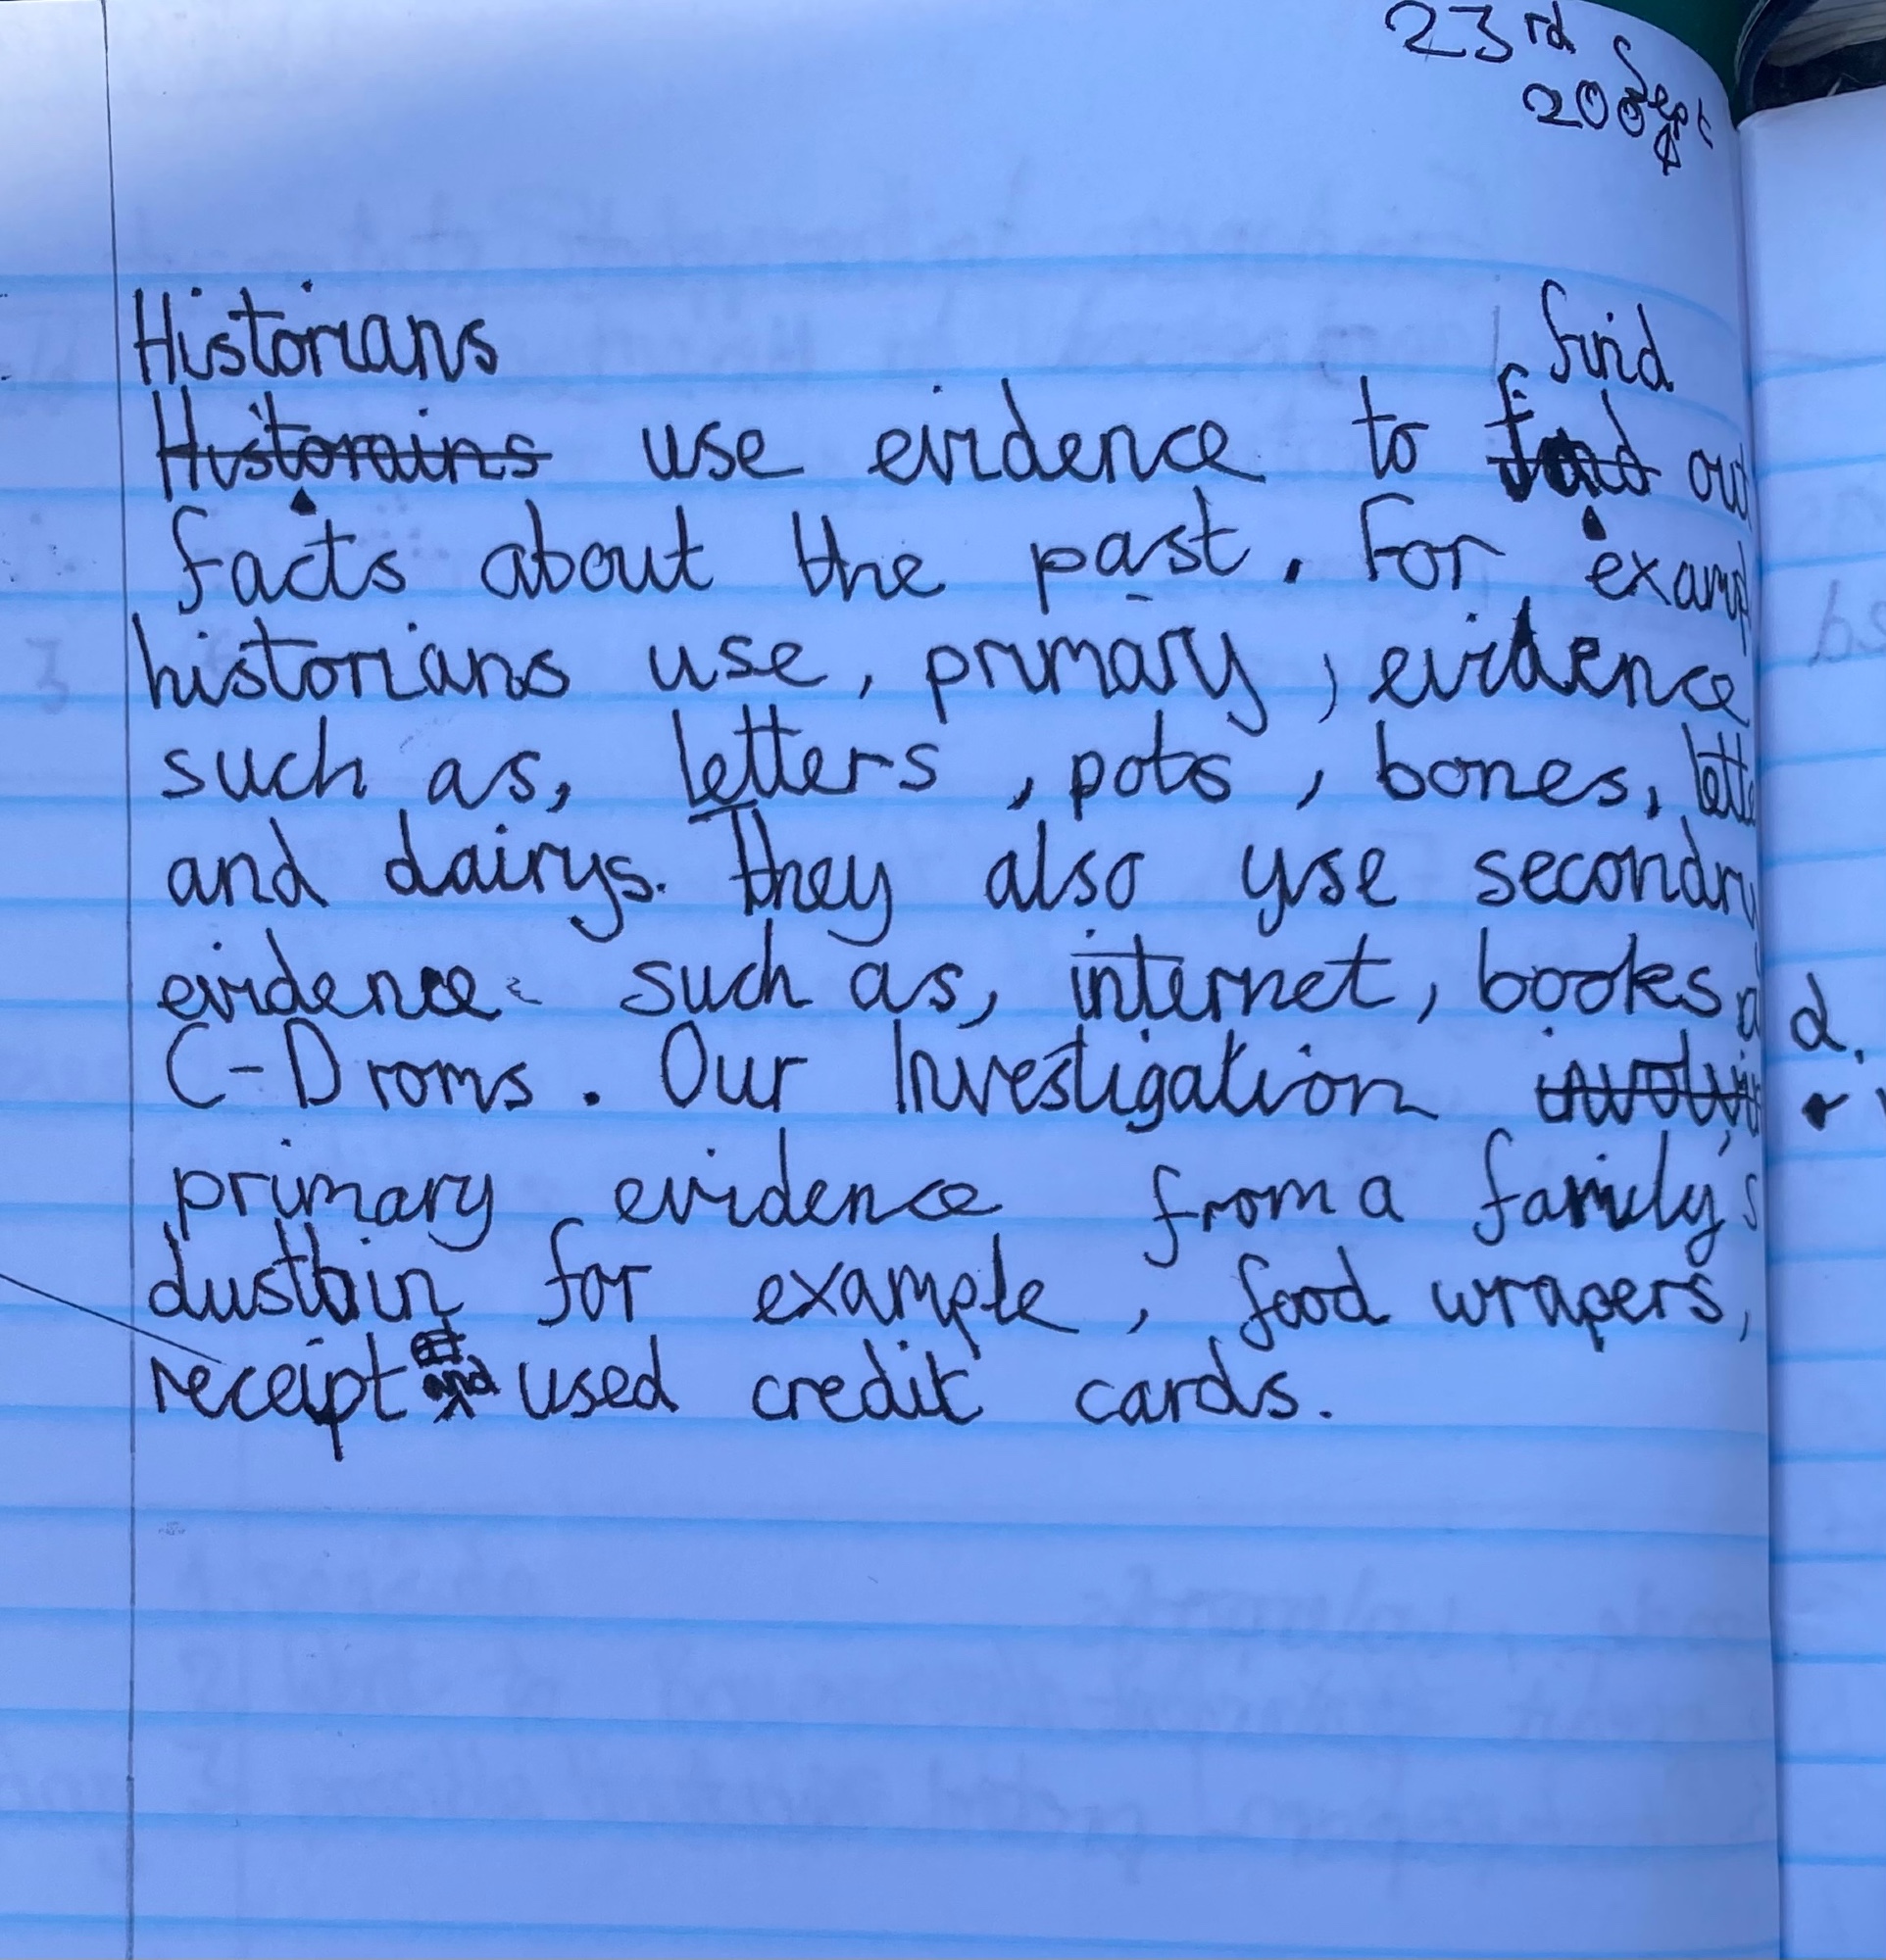 23rd Sept
Historians find
Historains use evidence to out
facts about the past. For examp
historians use, primary, evidence
such as, letters, pots, bones, lette
and dairys. They also yse secondry
evidence such as, internet, books a
C-Droms. Our Investigation involvin
primary evidence from a family's
dustbin for example, food wrapers,
receipt and used credit cards.